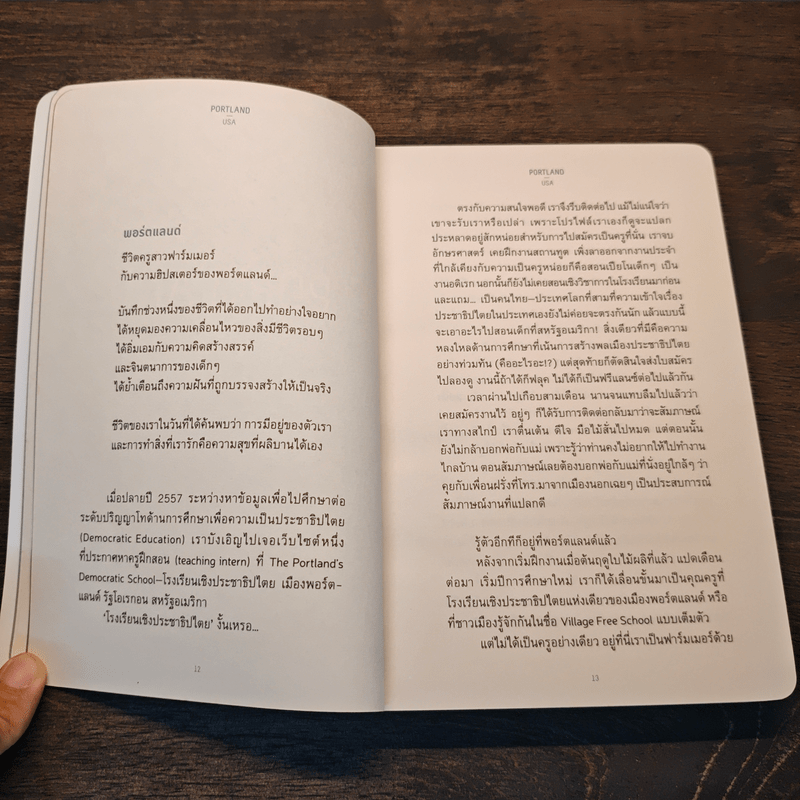 PORTLAND
USA
พอร์ตแลนด์
ชีวิตครูสาวฟาร์มเมอร์
กับความฮิปสเตอร์ของพอร์ตแลนด์...
บันทึกช่วงหนึ่งของชีวิตที่ได้ออกไปทำอย่างใจอยาก
ได้หยุดมองความเคลื่อนไหวของสิ่งมีชีวิตรอบๆ
ได้อิ่มเอมกับความคิดสร้างสรรค์
และจินตนาการของเด็กๆ
ได้ย้ำเตือนถึงความฝันที่ถูกบรรจงสร้างให้เป็นจริง
ชีวิตของเราในวันที่ได้ค้นพบว่า การมีอยู่ของตัวเรา
และการทำสิ่งที่เรารักคือความสุขที่ผลิบานได้เอง
เมื่อปลายปี 2557 ระหว่างหาข้อมูลเพื่อไปศึกษาต่อ
ระดับปริญญาโทด้านการศึกษาเพื่อความเป็นประชาธิปไตย
(Democratic Education) เราบังเอิญไปเจอเว็บไซต์หนึ่ง
ที่ประกาศหาครูฝึกสอน (teaching intern) ที่ The Portland's
Democratic School—โรงเรียนเชิงประชาธิปไตย เมืองพอร์ต-
แลนด์ รัฐโอเรกอน สหรัฐอเมริกา
'โรงเรียนเชิงประชาธิปไตย' งั้นเหรอ...
12
PORTLAND
USA
ตรงกับความสนใจพอดี เราจึงรีบติดต่อไป แม้ไม่แน่ใจว่า
เขาจะรับเราหรือเปล่า เพราะโปรไฟล์เราเองก็ดูจะแปลก
ประหลาดอยู่สักหน่อยสำหรับการไปสมัครเป็นครูที่นั่น เราจบ
อักษรศาสตร์ เคยฝึกงานสถานทูต เพิ่งลาออกจากงานประจำ
ที่ใกล้เคียงกับความเป็นครูหน่อยก็คือสอนเปียโนเด็กๆ เป็น
งานอดิเรก นอกนั้นก็ยังไม่เคยสอนเชิงวิชาการในโรงเรียนมาก่อน
และแถม... เป็นคนไทย—ประเทศโลกที่สามที่ความเข้าใจเรื่อง
ประชาธิปไตยในประเทศเองยังไม่ค่อยจะตรงกันนัก แล้วแบบนี้
จะเอาอะไรไปสอนเด็กที่สหรัฐอเมริกา! สิ่งเดียวที่มีคือความ
หลงใหลด้านการศึกษาที่เน้นการสร้างพลเมืองประชาธิปไตย
อย่างท่วมท้น (คืออะไรอะ!?) แต่สุดท้ายก็ตัดสินใจส่งใบสมัคร
ไปลองดู งานนี้ถ้าได้ก็ฟลุค ไม่ได้ก็เป็นฟรีแลนซ์ต่อไปแล้วกัน
เวลาผ่านไปเกือบสามเดือน นานจนแทบลืมไปแล้วว่า
เคยสมัครงานไว้ อยู่ๆ ก็ได้รับการติดต่อกลับมาว่าจะสัมภาษณ์
เราทางสไกป์ เราตื่นเต้น ดีใจ มือไม้สั่นไปหมด แต่ตอนนั้น
ยังไม่กล้าบอกพ่อกับแม่ เพราะรู้ว่าท่านคงไม่อยากให้ไปทำงาน
ไกลบ้าน ตอนสัมภาษณ์เลยต้องบอกพ่อกับแม่ที่นั่งอยู่ใกล้ๆ ว่า
คุยกับเพื่อนฝรั่งที่โทร.มาจากเมืองนอกเฉยๆ เป็นประสบการณ์
สัมภาษณ์งานที่แปลกดี
รู้ตัวอีกทีก็อยู่ที่พอร์ตแลนด์แล้ว
หลังจากเริ่มฝึกงานเมื่อต้นฤดูใบไม้ผลิที่แล้ว แปดเดือน
ต่อมา เริ่มปีการศึกษาใหม่ เราก็ได้เลื่อนขั้นมาเป็นคุณครูที่
โรงเรียนเชิงประชาธิปไตยแห่งเดียวของเมืองพอร์ตแลนด์ หรือ
ที่ชาวเมืองรู้จักกันในชื่อ Village Free School แบบเต็มตัว
แต่ไม่ได้เป็นครูอย่างเดียว อยู่ที่นี่เราเป็นฟาร์มเมอร์ด้วย
13